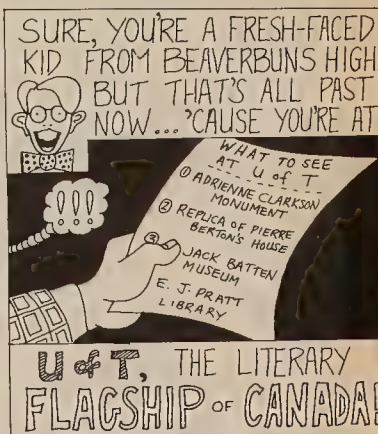 SURE, YOU'RE A FRESH-FACED
KID FROM BEAVERBUNS HIGH
BUT THAT'S ALL PAST
NOW... 'CAUSE YOU'RE AT
!!!
WHAT TO SEE
AT U of T
① ADRIENNE CLARKSON
MONUMENT
② REPLICA OF PIERRE
BERTON'S HOUSE
③ JACK BATTEN
MUSEUM
E. J. PRATT
LIBRARY
U of T, THE LITERARY
FLAGSHIP OF CANADA!